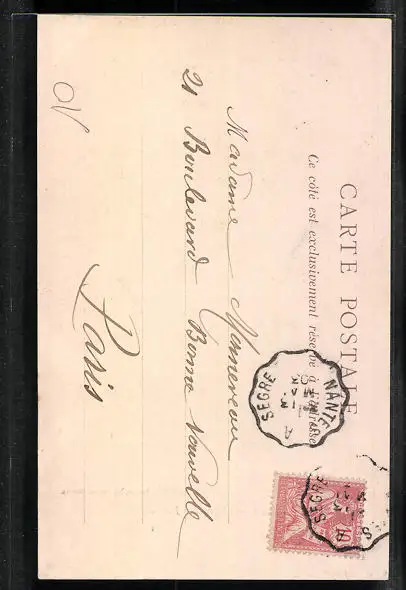 CARTE POSTALE
Ce côté est exclusivement réservé à l'adresse
Madame
21 Boulevard Bonne Nouvelle
Paris
SEGRE A NANTES
SEGRE
10